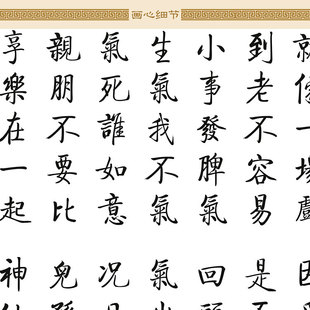 画心细节
就像一場戲 因
到老不容易 是
小事發脾氣 回
生氣我不氣 氣
氣死誰如意 况
親朋不要比 兒
享樂在一起 神